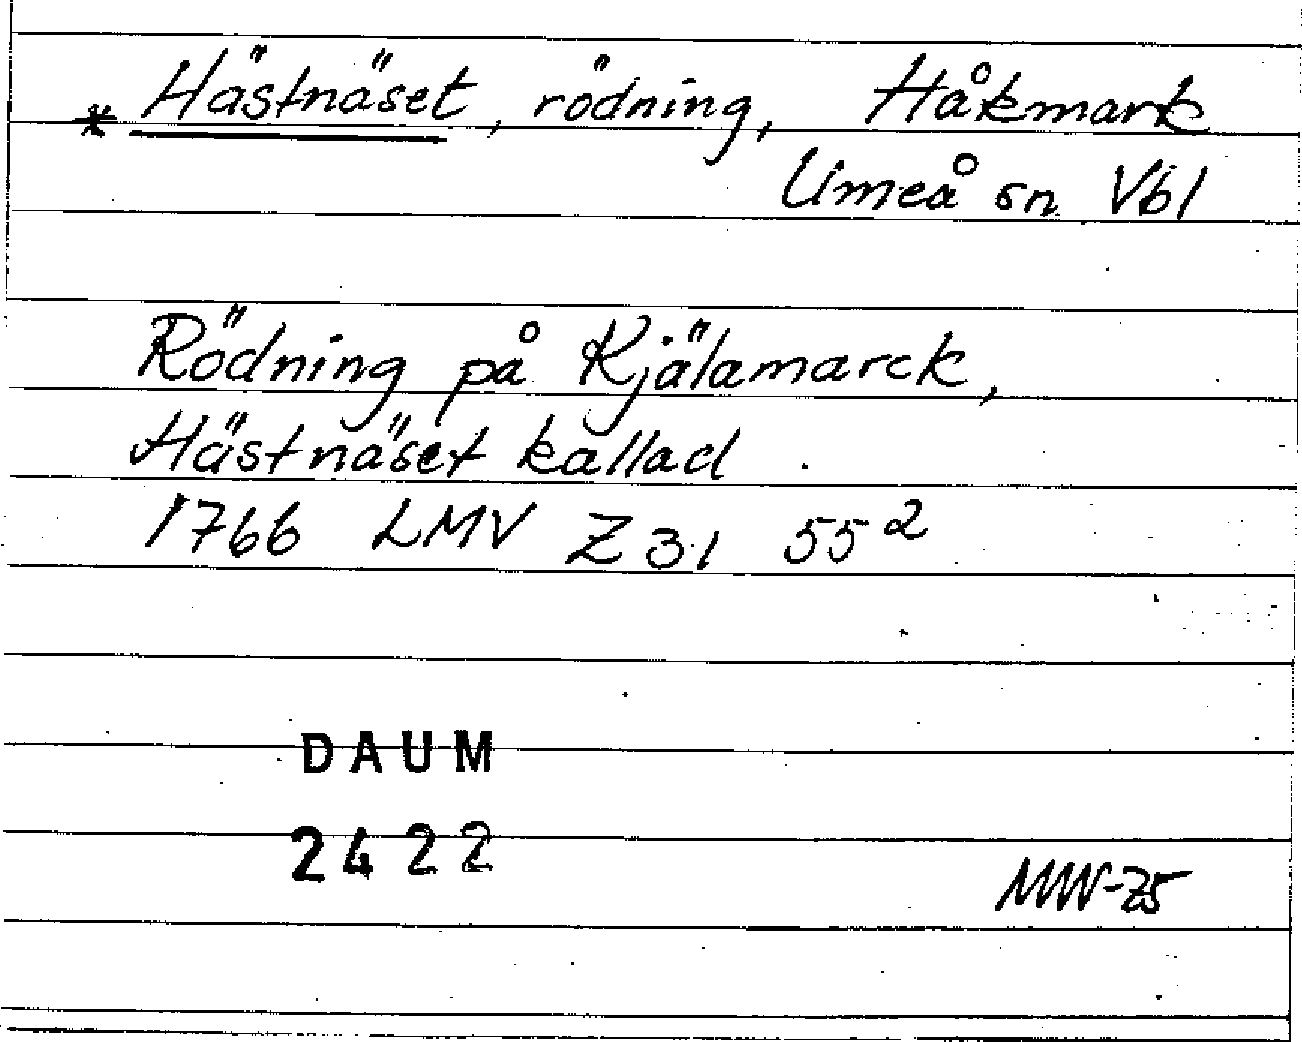 * Hästnäset, rödning, Håkmark
Umeå sn Vbl
Rödning på Kjälamarck,
Hästnäset kallad
1766 LMV Z 31 55²
DAUM
2422
MW-75